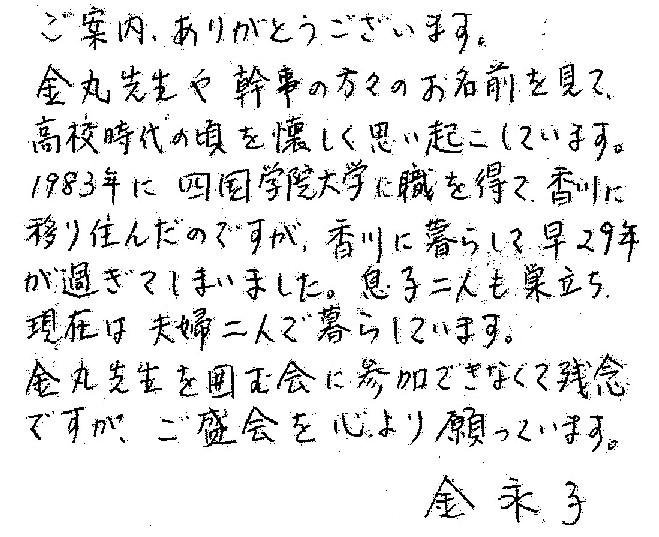 ご案内、ありがとうございます。
金丸先生や幹事の方々のお名前を見て、
高校時代の頃を懐しく思い起こしています。
1983年に四国学院大学に職を得て、香川に
移り住んだのですが、香川に暮らして早29年
が過ぎてしまいました。息子二人も巣立ち、
現在は夫婦二人で暮らしています。
金丸先生を囲む会に参加できなくて残念
ですが、ご盛会を心より願っています。
金永子